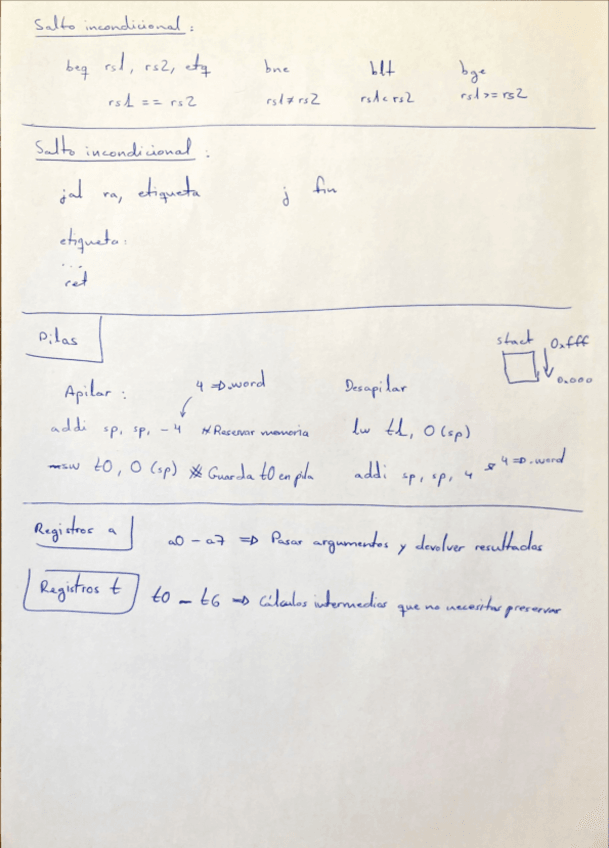 Salto incondicional:
beq rs1, rs2, etq bne blt bge
rs1 == rs2 rs1≠rs2 rs1<rs2 rs1>=rs2
Salto incondicional:
jal ra, etiqueta j fin
etiqueta:
...
ret
Pilas
stack 0xfff
0x000
Apilar: 4 => .word Desapilar
addi sp, sp, -4 # Reservar memoria lw t1, 0(sp)
sw t0, 0(sp) # Guarda t0 en pila addi sp, sp, 4 4 => .word
Registros a a0 - a7 => Pasar argumentos y devolver resultados
Registros t t0 - t6 => Cálculos intermedios que no necesitas preservar